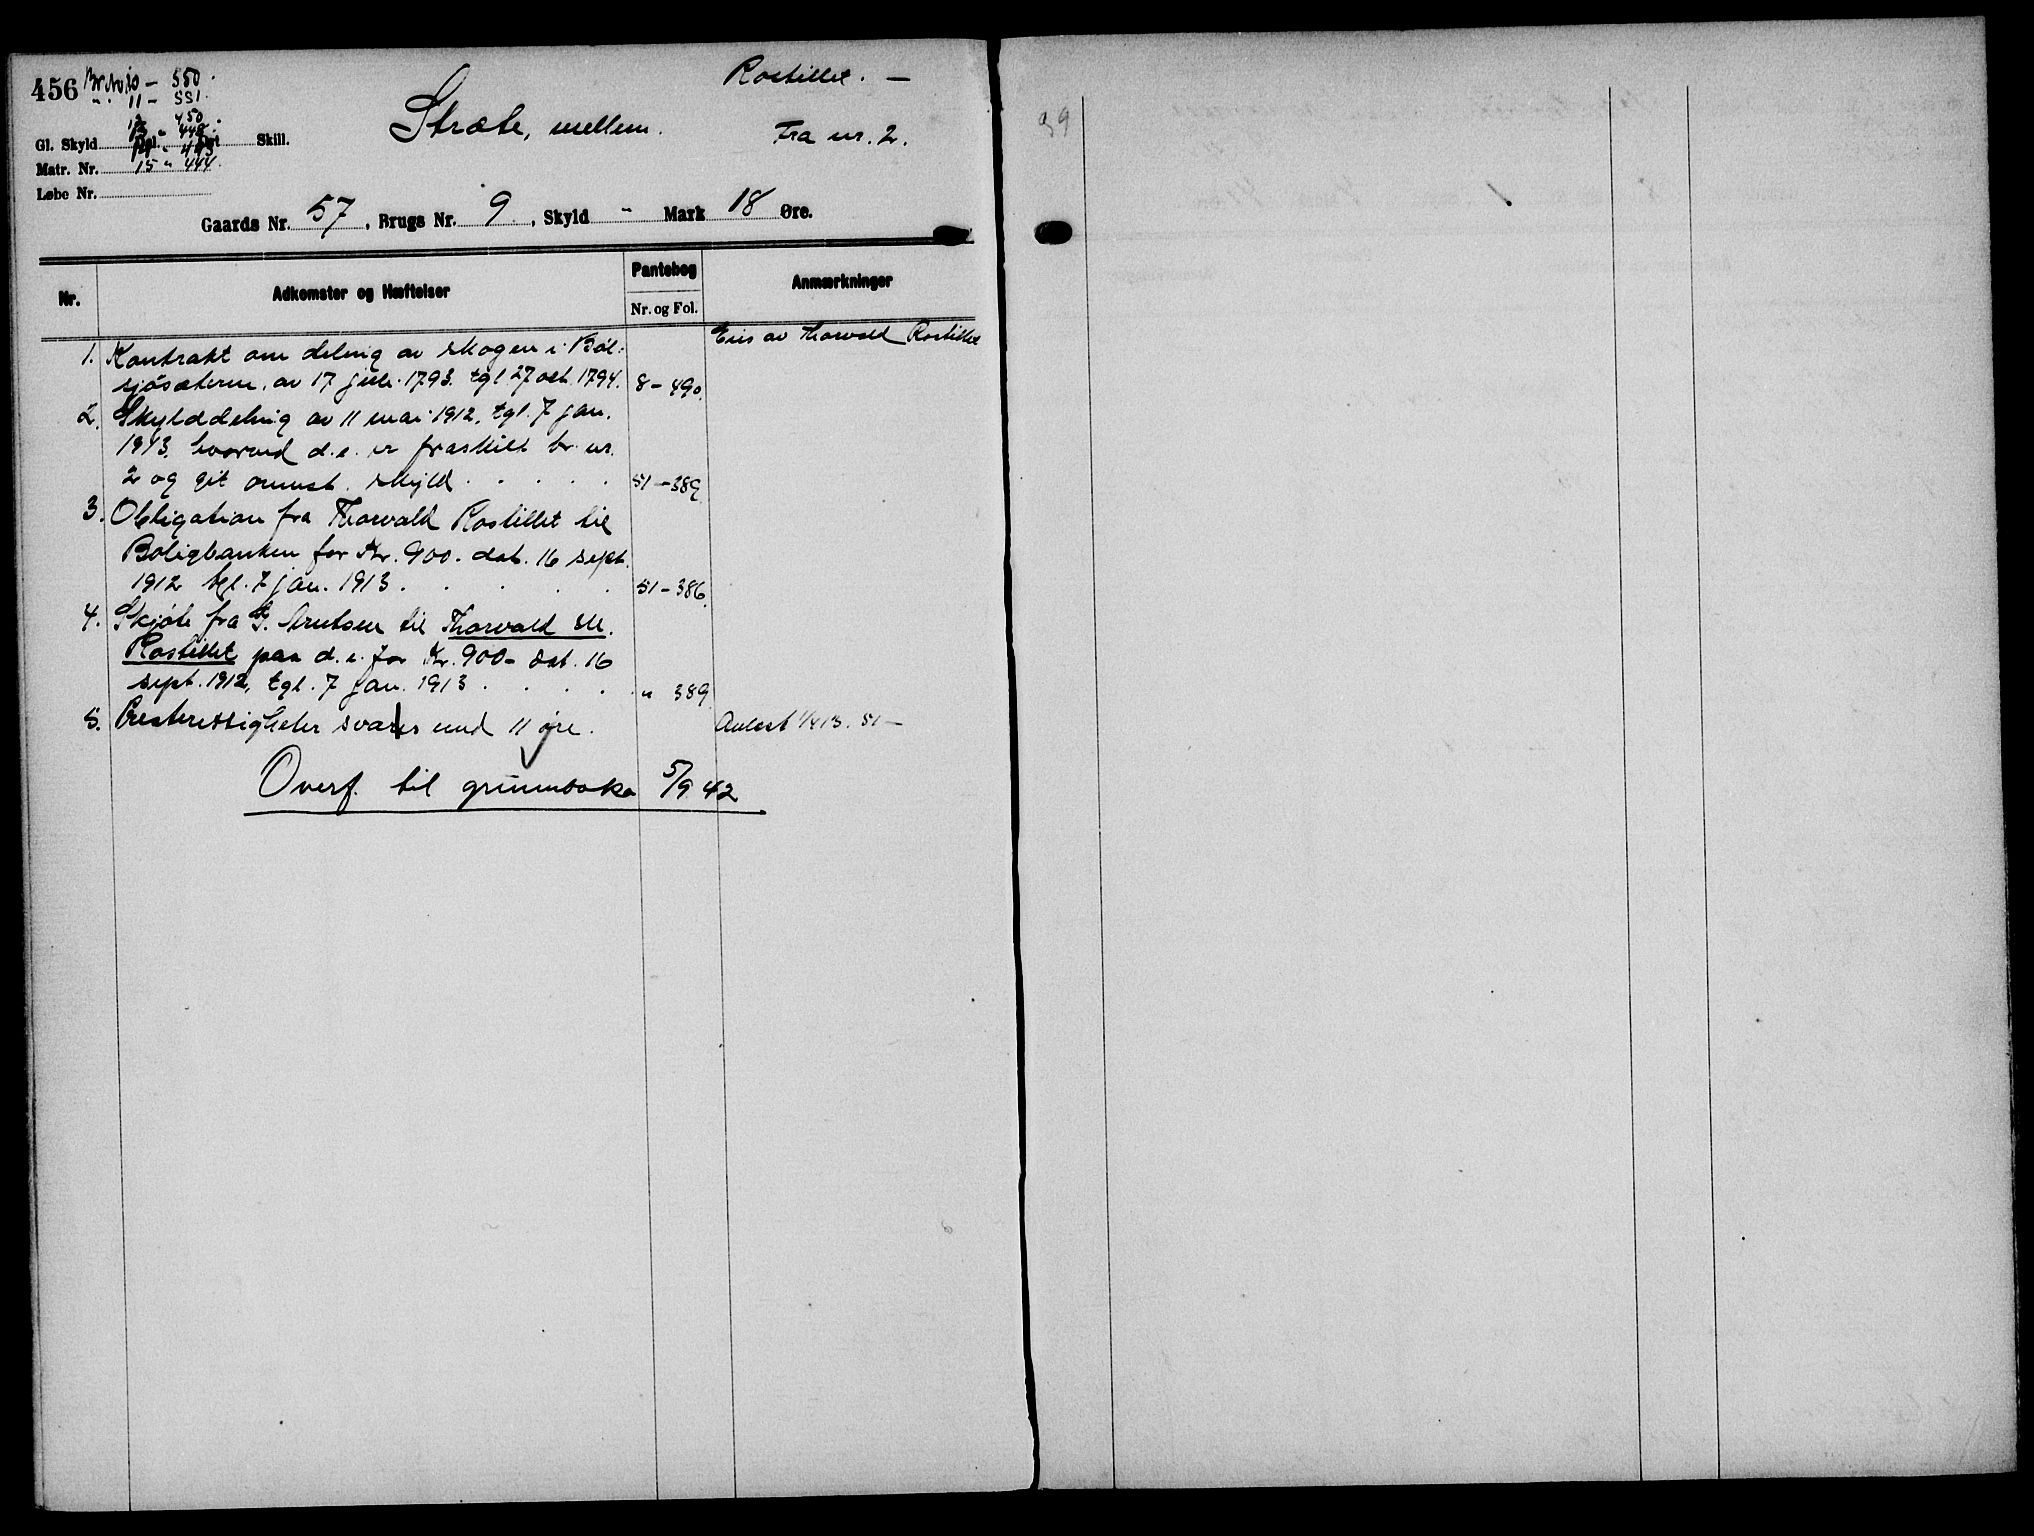 456 Br. No. 10 - 550.
" 11 - 551.
12 " 450.
13 " 448.
Gl. Skyld Skill.
Matr. Nr. 15 " 444.
Løbe Nr.
Stræte, mellem.
Rostillet. —
Fra nr. 2.
Gaards Nr. 57, Brugs Nr. 9, Skyld " Mark 18 Øre.
Nr. Adkomster og Hæftelser Pantebog Anmærkninger
Nr. og Fol.
Eies av Thorvald Rostillet
1. Kontrakt om deling av skogen i Böl-
sjösæteren, av 17 juli 1793. tgl. 27 oct. 1794. 8 - 490.
2. Skylddeling av 11 mai 1912, tgl. 7 jan.
1913, hvorved d.e. er fraskilt br. nr.
2 og git omnst. skyld . . . . . 51 - 389.
3. Obligation fra Thorvald Rostillet til
Boligbanken for Kr. 900. dat. 16 sept.
1912 tgl. 7 jan. 1913 . . . . 51 - 386.
4. Skjøte fra G. Arntsen til Thorvald M.
Rostillet paa d.e. for Kr. 900 - dat. 16
sept. 1912, tgl. 7 jan. 1913 . . . . " 389
5. Presterettigheter svares med 11 øre. Avløst 1/4 13. 51 -
Overf. til grunnboka 5/9 42